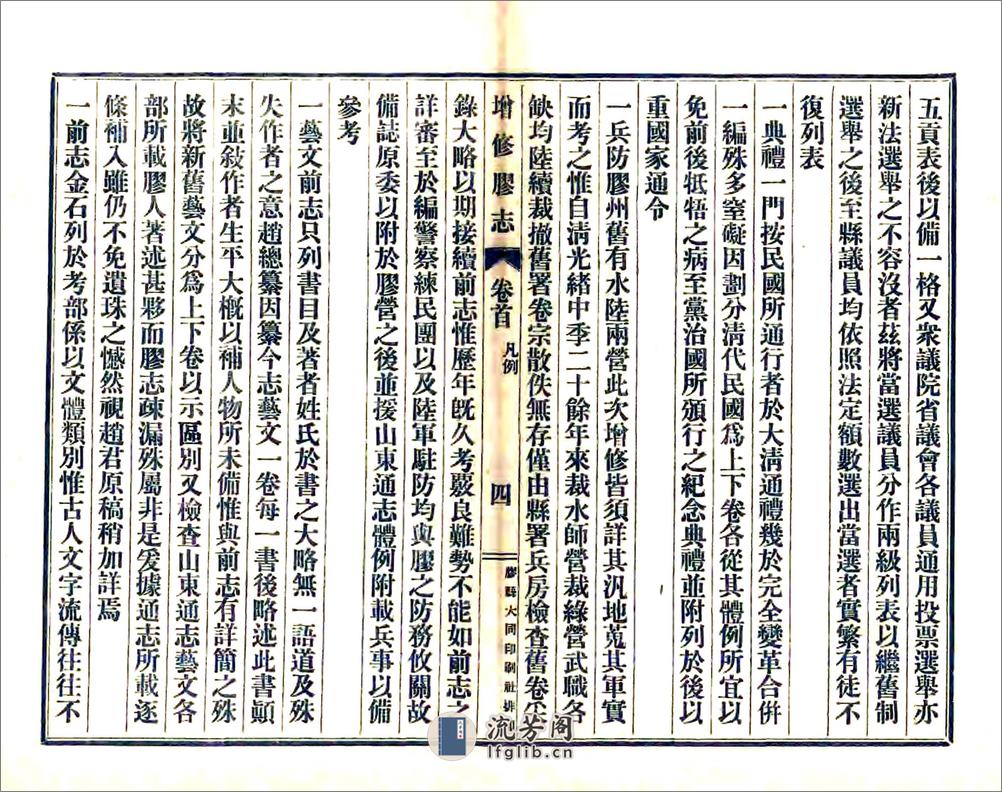 五貢表後以備一格又衆議院省議會各議員通用投票選舉亦
新法選舉之不容沒者茲將當選議員分作兩級列表以繼舊制
選舉之後至縣議員均依照法定額數選出當選者實繁有徒不
復列表
一典禮一門按民國所通行者於大淸通禮幾於完全變革合倂
一編殊多窒礙因劃分淸代民國爲上下卷各從其體例所宜以
免前後牴牾之病至黨治國所頒行之紀念典禮並附列於後以
重國家通令
一兵防膠州舊有水陸兩營此次增修皆須詳其汛地蒐其軍實
而考之惟自淸光緒中季二十餘年來裁水師營裁綠營武職各
缺均陸續裁撤舊署卷宗散佚無存僅由縣署兵房檢查舊卷
增修膠志
卷首
凡例
四
膠縣大同印刷社排
錄大略以期接續前志惟歷年旣久考覈良難勢不能如前志之
詳審至於編警察練民團以及陸軍駐防均與膠之防務攸關故
備誌原委以附於膠營之後並援山東通志體例附載兵事以備
參考
一藝文前志只列書目及著者姓氏於書之大略無一語道及殊
失作者之意趙總纂因纂今志藝文一卷每一書後略述此書顚
末並敍作者生平大槪以補人物所未備惟與前志有詳簡之殊
故將新舊藝文分爲上下卷以示區別又檢查山東通志藝文各
部所載膠人著述甚夥而膠志疎漏殊屬非是爰據通志所載逐
條補入雖仍不免遺珠之憾然視趙君原稿稍加詳焉
一前志金石列於考部係以文體類別惟古人文字流傳往往不
流芳阁
lfglib.cn